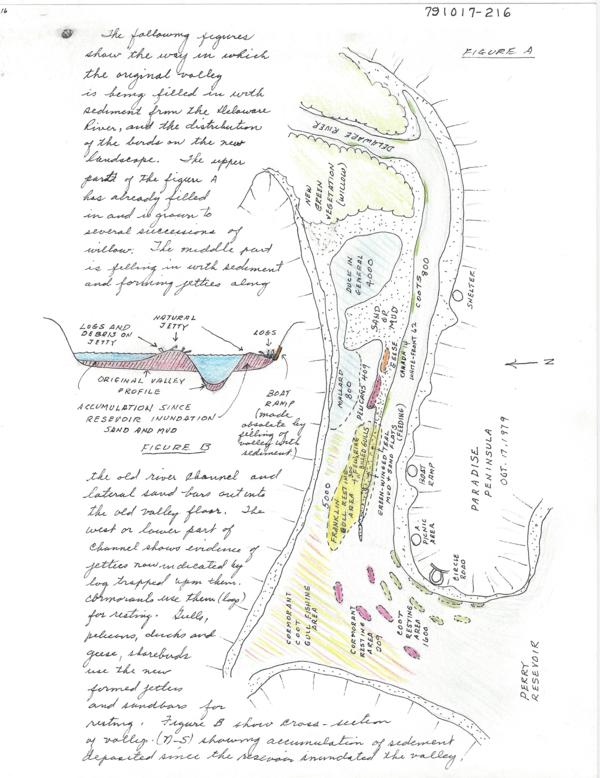 16
791017-216
FIGURE A
The following figures
show the way in which
the original valley
is being filled in with
sediment from the Delaware
River, and the distribution
of the birds on the new
landscape. The upper
part of the figure A
has already filled
in and is grown to
several successions of
willow. The middle part
is filling in with sediment
and forming jetties along
DELAWARE RIVER
NEW
GREEN
VEGETATION
(WILLOW)
DUCK IN
GENERAL
4,000
COOTS 800
SHELTER
SAND
OR
MUD
GEESE
CANADA 14
WHITE-FRONT 62
N
MALLARD
800
PELICANS 409
GREEN-WINGED TEAL
MUD & SAND FLATS
(FEEDING)
5000
FRANKLIN
GULL RESTING
AREA
BILLED GULLS
BOAT
RAMP
PICNIC
AREA
CIRCLE
ROAD
PARADISE
PENINSULA
OCT. 17, 1979
CORMORANT
COOT
GULL FISHING
AREA
CORMORANT
RESTING
AREA
209
COOT
RESTING
AREA
1600
PERRY
RESERVOIR
LOGS AND
DEBRIS ON
JETTY
NATURAL
JETTY
LOGS
ORIGINAL VALLEY
PROFILE
ACCUMULATION SINCE
RESERVOIR INUNDATION
SAND AND MUD
BOAT
RAMP
(made
obsolete by
filling of
valley with
sediment)
FIGURE B
the old river channel and
lateral sand bars out into
the old valley floor. The
west or lower part of
channel shows evidence of
jetties now indicated by
log trapped upon them.
Cormorants use them (log)
for resting. Gulls,
pelicans, ducks and
geese, shorebirds
use the new
formed jetties
and sandbars for
resting. Figure B show cross-section
of valley. (N-S) showing accumulation of sediment
deposited since the reservoir inundated the valley.